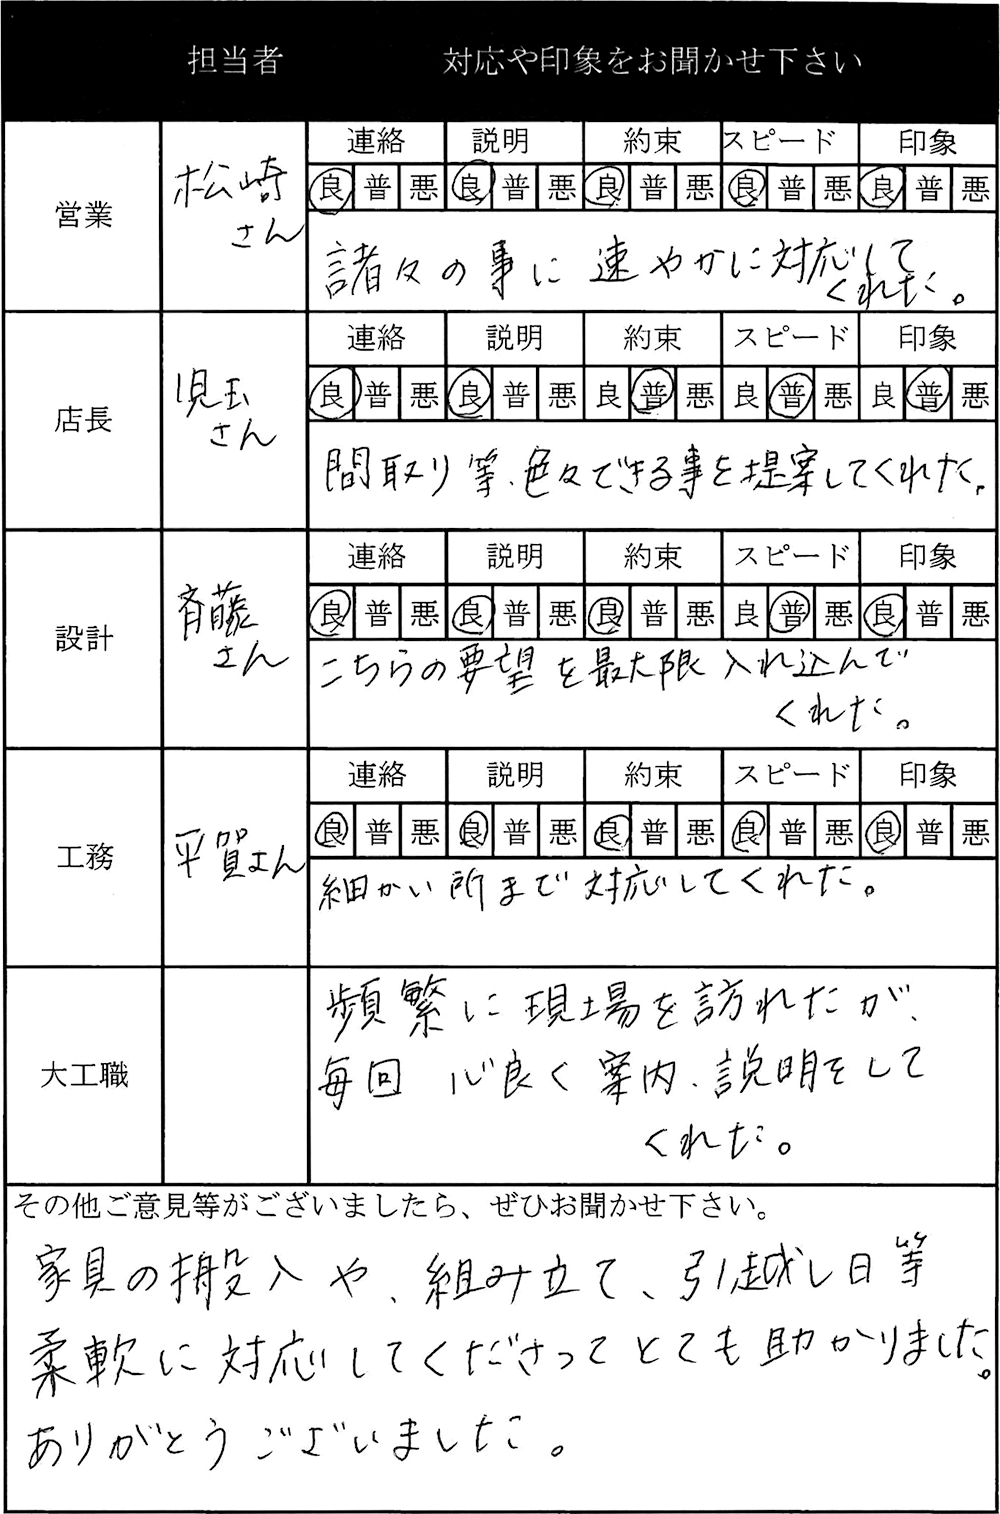 担当者 対応や印象をお聞かせ下さい
営業
松崎
さん
連絡 説明 約束 スピード 印象
良 普 悪 良 普 悪 良 普 悪 良 普 悪 良 普 悪
諸々の事に速やかに対応して
くれた。
店長
児玉
さん
連絡 説明 約束 スピード 印象
良 普 悪 良 普 悪 良 普 悪 良 普 悪 良 普 悪
間取り等、色々できる事を提案してくれた。
設計
斉藤
さん
連絡 説明 約束 スピード 印象
良 普 悪 良 普 悪 良 普 悪 良 普 悪 良 普 悪
こちらの要望を最大限入れ込んで
くれた。
工務
平賀さん
連絡 説明 約束 スピード 印象
良 普 悪 良 普 悪 良 普 悪 良 普 悪 良 普 悪
細かい所まで対応してくれた。
大工職
頻繁に現場を訪れたが、
毎回 心良く案内、説明をして
くれた。
その他ご意見等がございましたら、ぜひお聞かせ下さい。
家具の搬入や、組み立て、引越し日等
柔軟に対応してくださってとても助かりました。
ありがとうございました。